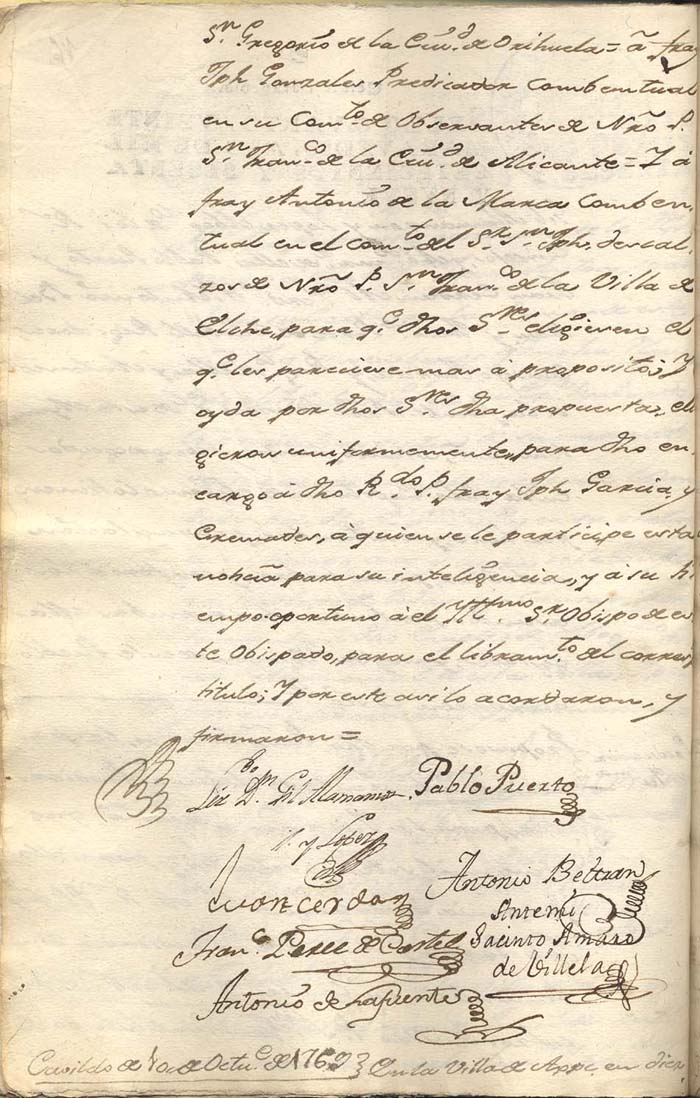 Sn. Gregorio de la Ciud. de Orihuela = â fray
Jph Gonzales Predicador Combentual
en su Comto. de Observantes de Nrõ P.
Sn. Franco. de la Ciud. de Alicante = Y â
fray Antonio de la Marca Comben,
tual en el comto. del Sr. Sn. Jph. descal,
zos de Nrõ P. Sn. Franco. de la Villa de
Elche, para qe. dhos Sres. eligiesen el
qe. les pareciese mas â proposito; Y
oyda por dhos Sres. dha propuesta, eli
gieron uniformemente, para dho en
cargo â dho Rdo. P. fray Jph Garcia y
Cremades, â quien se le participe esta
noticia para su inteligencia, y â su ti
empo oportuno â el Yllmo. Sr. Obispo de es
te Obispado, para el libramto. del corres,
titulo; Y por este asi lo acordaron, y
firmaron =
Dn. Gil Pablo Puerto
y Lopez
Juan Cerdan Antonio Beltran
Antemi
Franco. Perez de Jacinto Amaro
de Villela
Antonio de Lafuente
Cavildo de 10. de Octue. de 1769 En la Villa de Aspe en diez